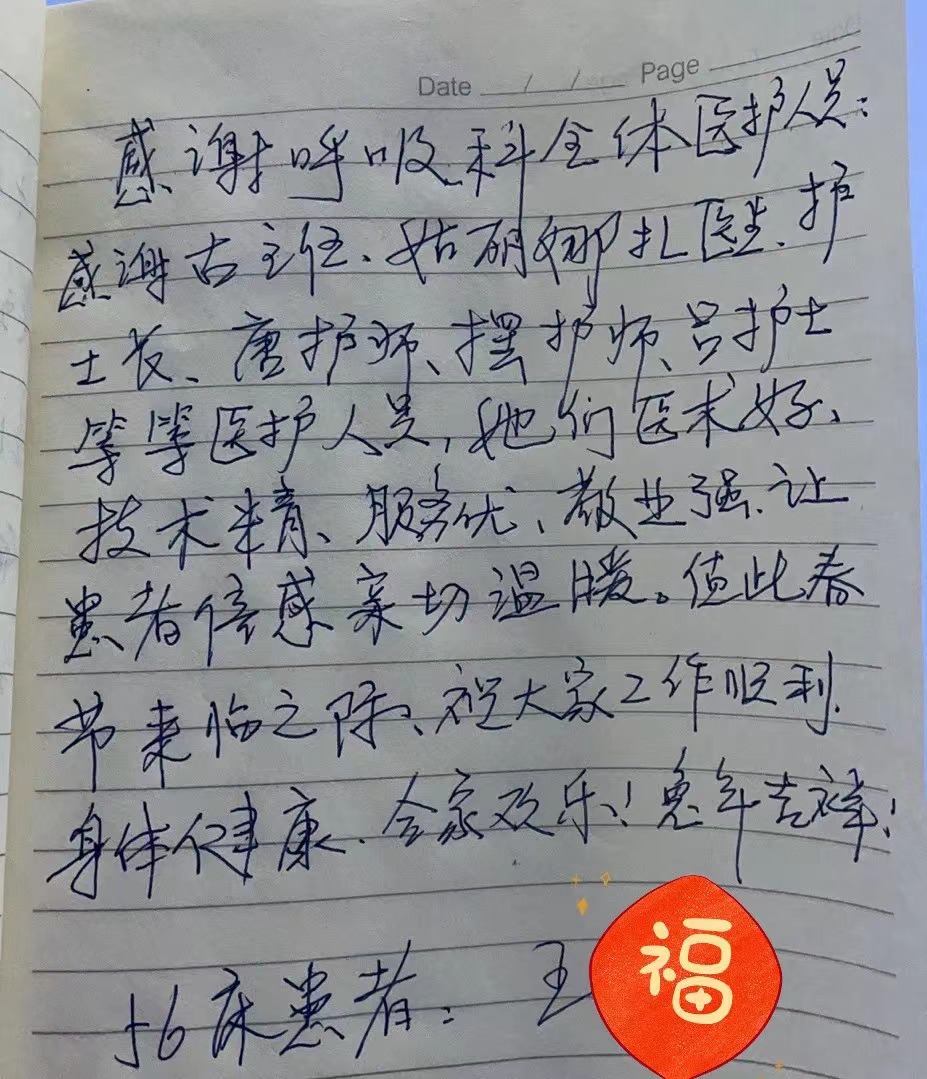 Date / / Page
感谢呼吸科全体医护人员:
感谢古主任、姑丽娜扎医生、护
士长、唐护师、摆护师、吕护士
等等医护人员,她们医术好、
技术精、服务优、敬业强、让
患者倍感亲切温暖。值此春
节来临之际、祝大家工作顺利、
身体健康、全家欢乐!兔年吉祥!
56床患者: 王
福